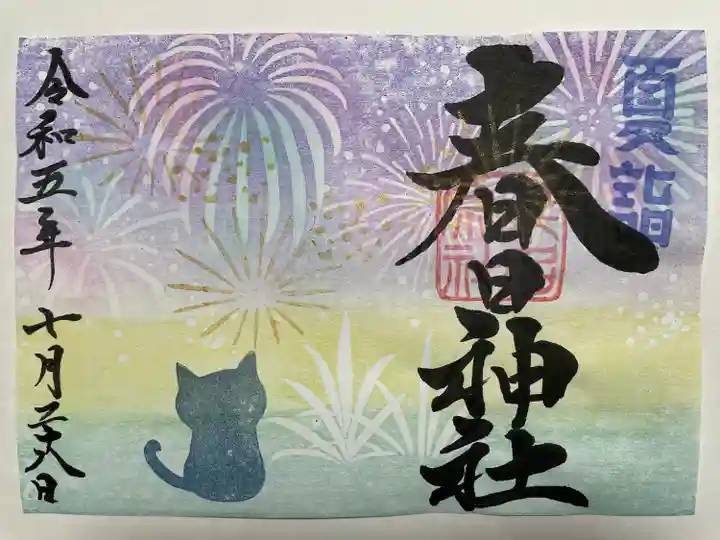 夏詣
春日神社
令和五年 十月二十八日